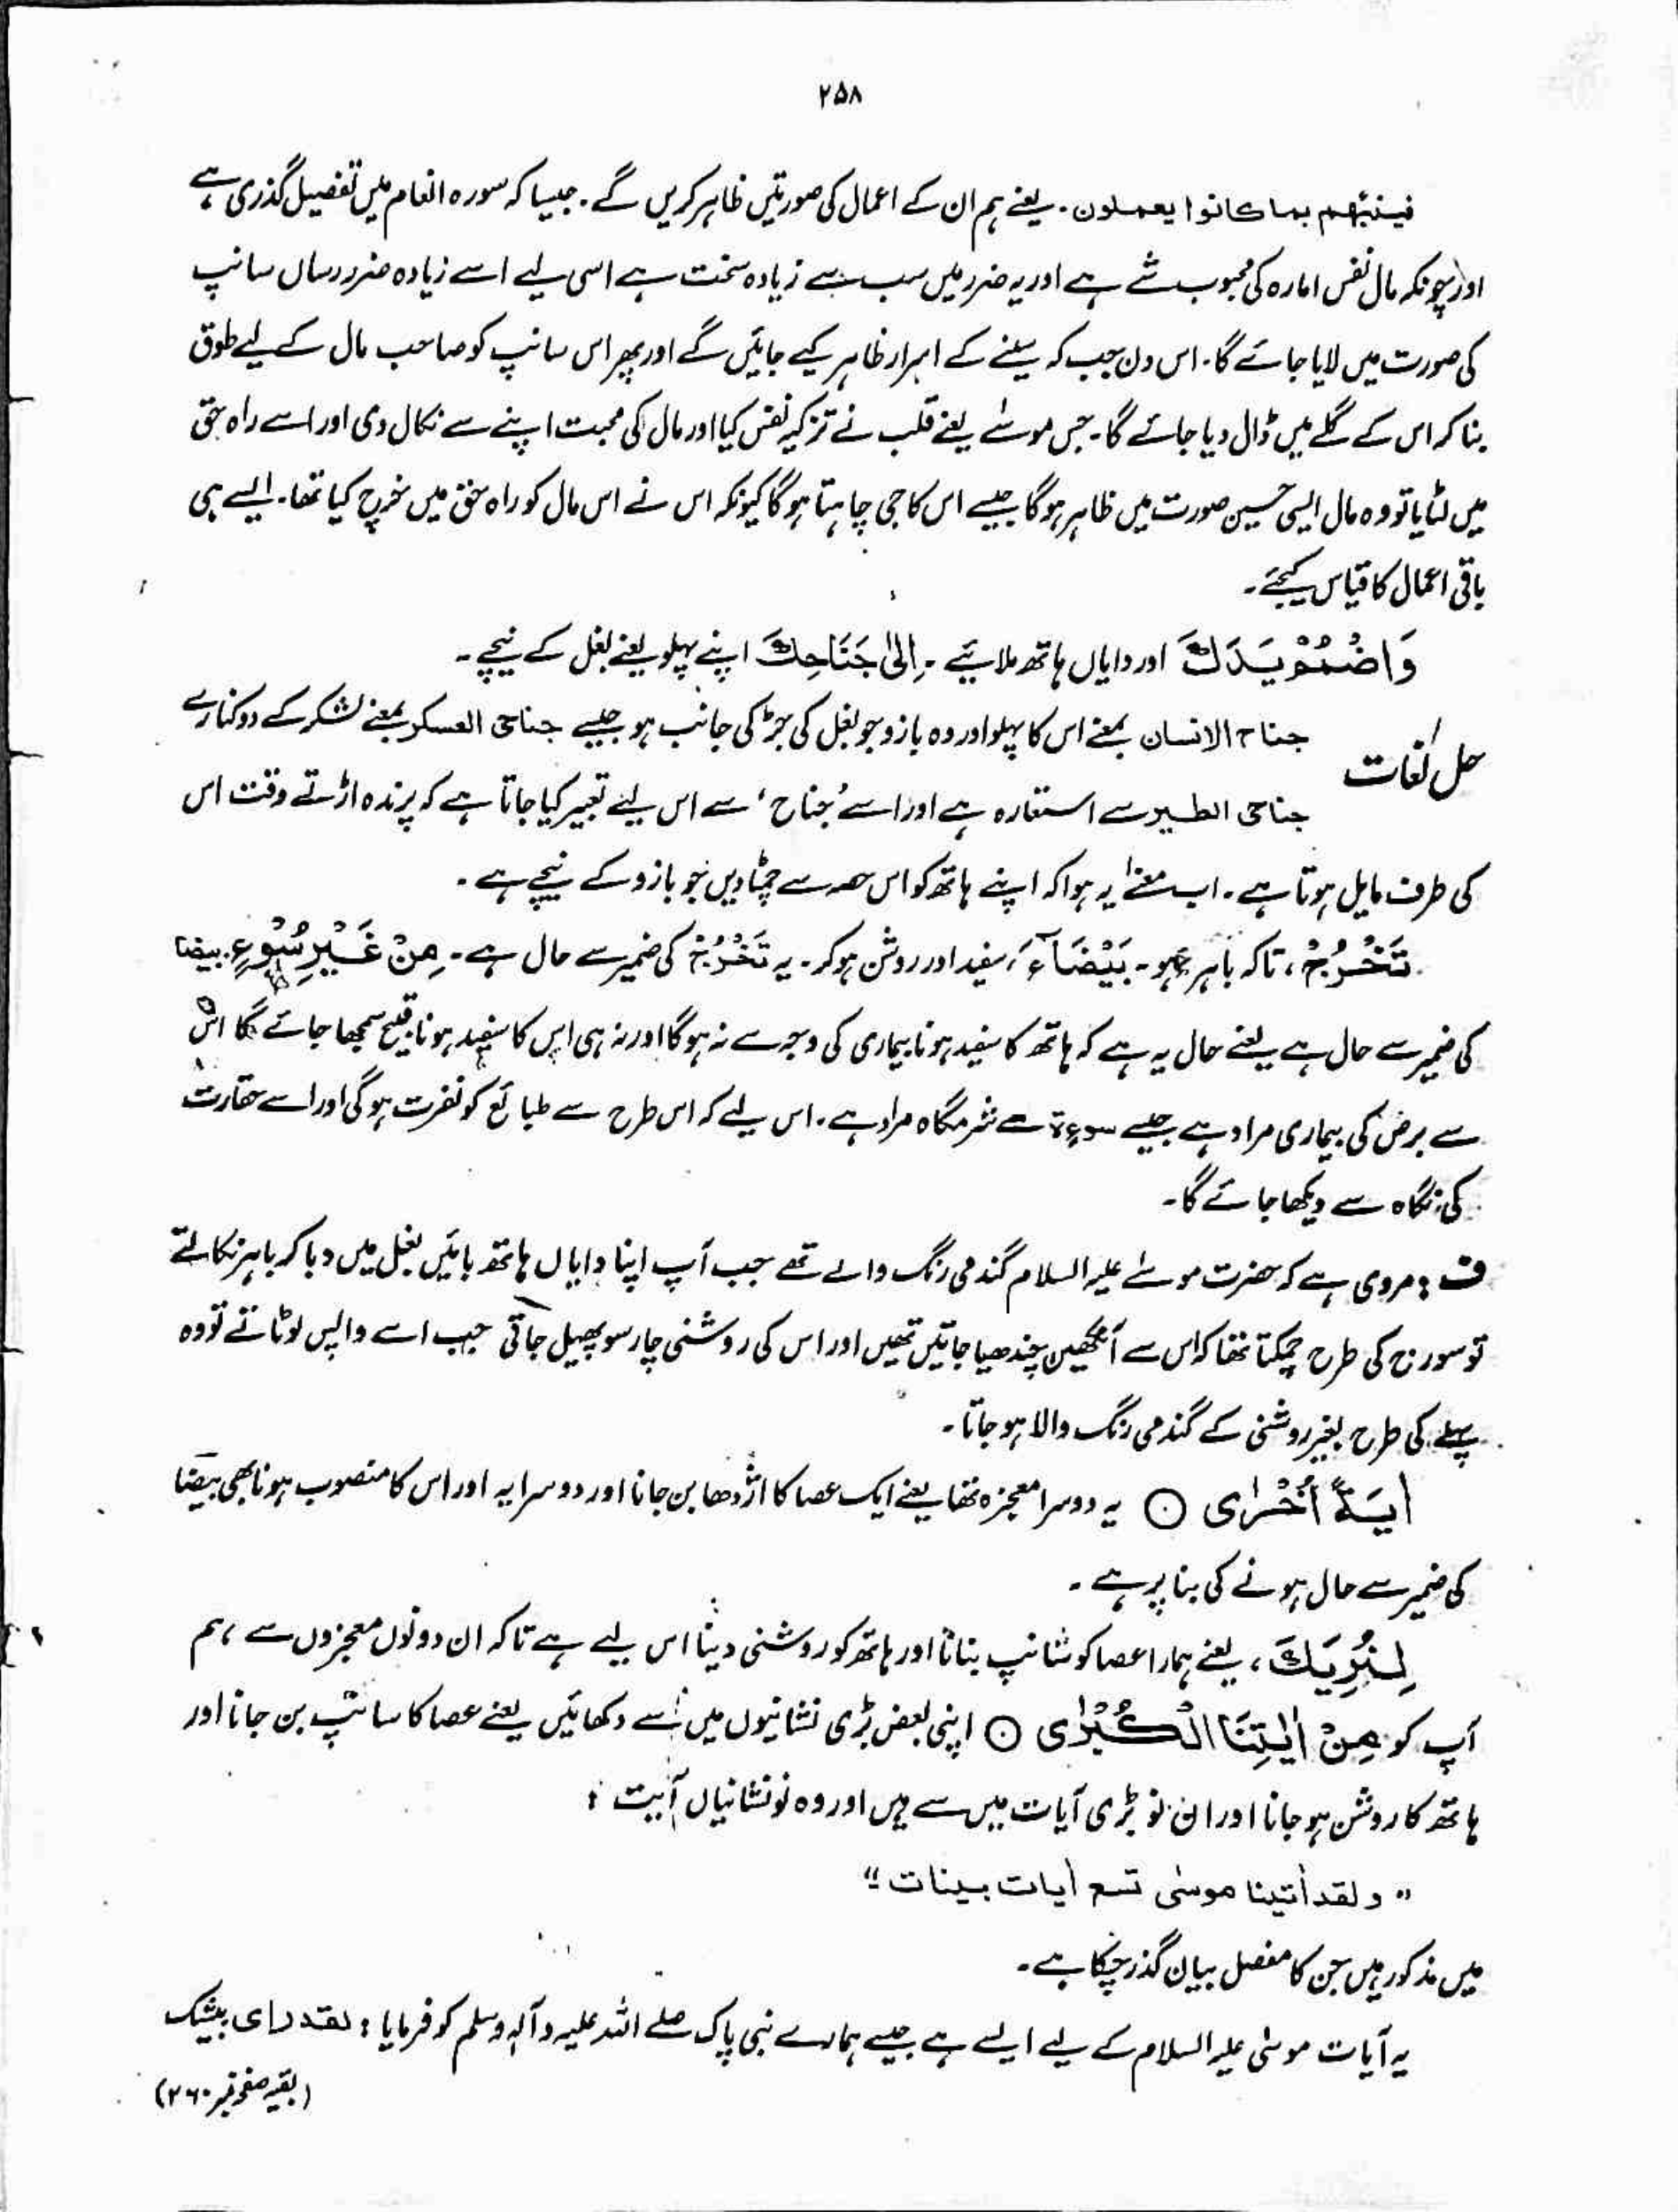 ۲۵۸
فینبئھم بما کانوا یعملون۔ یعنے ہم ان کے اعمال کی صورتیں ظاہر کریں گے۔ جیسا کہ سورہ انعام میں تفصیل گذری ہے
اور چونکہ مال نفس امارہ کی محبوب شے ہے اور یہ ضرر میں سب سے زیادہ سخت ہے اسی لیے اسے زیادہ ضرر رساں سانپ
کی صورت میں لایا جائے گا۔ اس دن جب کہ سینے کے اسرار ظاہر کیے جائیں گے اور پھر اس سانپ کو صاحب مال کے لیے طوق
بنا کر اس کے گلے میں ڈال دیا جائے گا۔ جس موسٰے یعنے قلب نے تزکیہ نفس کیا اور مال کی محبت اپنے سے نکال دی اور اسے راہ حق
میں لٹایا تو وہ مال ایسی حسین صورت میں ظاہر ہوگا جیسے اس کا جی چاہتا ہوگا کیونکہ اس نے اس مال کو راہ حق میں خرچ کیا تھا۔ ایسے ہی
باقی اعمال کا قیاس کیجئے۔
وَاضْمُمْ یَدَكَ اور دایاں ہاتھ ملائیے۔ اِلیٰ جَنَاحِكَ اپنے پہلو یعنے بغل کے نیچے۔
حل لغات جناح الانسان بمعنے اس کا پہلو اور وہ بازو جو بغل کی جڑ کی جانب ہو جیسے جناحی العسکر بمعنے لشکر کے دو کنارے
جناحی الطیر سے استعارہ ہے اور اسے ’جناح‘ سے اس لیے تعبیر کیا جاتا ہے کہ پرندہ اڑتے وقت اس
کی طرف مایل ہوتا ہے۔ اب معنےٰ یہ ہوا کہ اپنے ہاتھ کو اس حصہ سے چمٹا دیں جو بازو کے نیچے ہے۔
تَخْرُجْ، تاکہ باہر ہو۔ بَیْضَآءَ، سفید اور روشن ہو کر۔ یہ تَخْرُجْ کی ضمیر سے حال ہے۔ مِنْ غَیْرِ سُوْءٍ بیضا
کی ضمیر سے حال ہے یعنے حال یہ ہے کہ ہاتھ کا سفید ہونا بیماری کی وجہ سے نہ ہوگا اور نہ ہی اس کا سفید ہونا قبیح سمجھا جائے گا اس
سے برص کی بیماری مراد ہے جیسے سوءۃ سے شرمگاہ مراد ہے۔ اس لیے کہ اس طرح سے طبائع کو نفرت ہوگی اور اسے حقارت
کی نگاہ سے دیکھا جائے گا۔
ف : مروی ہے کہ حضرت موسٰے علیہ السلام گندمی رنگ والے تھے جب آپ اپنا دایاں ہاتھ بائیں بغل میں دبا کر باہر نکالتے
تو سورج کی طرح چمکتا تھا کہ اس سے آنکھیں چندھیا جاتیں تھیں اور اس کی روشنی چار سو پھیل جاتی جب اسے واپس لوٹاتے تو وہ
پہلے کی طرح بغیر روشنی کے گندمی رنگ والا ہو جاتا۔
اٰیَةً اُخْرٰی ○ یہ دوسرا معجزہ تھا یعنے ایک عصا کا اژدھا بن جانا اور دوسرا یہ اور اس کا منصوب ہونا بھی بیضا
کی ضمیر سے حال ہونے کی بنا پر ہے۔
لِنُرِیَكَ، یعنے ہمارا عصا کو سانپ بنانا اور ہاتھ کو روشنی دینا اس لیے ہے تاکہ ان دونوں معجزوں سے ، ہم
آپ کو مِنْ اٰیٰتِنَا الْکُبْرٰی ○ اپنی بعض بڑی نشانیوں میں سے دکھائیں یعنے عصا کا سانپ بن جانا اور
ہاتھ کا روشن ہو جانا اور ان نو بڑی آیات میں سے ہیں اور وہ نو نشانیاں آیت :
” ولقد اٰتینا موسٰی تسع اٰیات بینات “
میں مذکور ہیں جن کا مفصل بیان گذر چکا ہے۔
یہ آیات موسٰی علیہ السلام کے لیے ایسے ہے جیسے ہمارے نبی پاک صلے اللہ علیہ و آلہٖ وسلم کو فرمایا : لقد رای بیشک
(بقیہ صفحہ نمبر ۲۶۰)